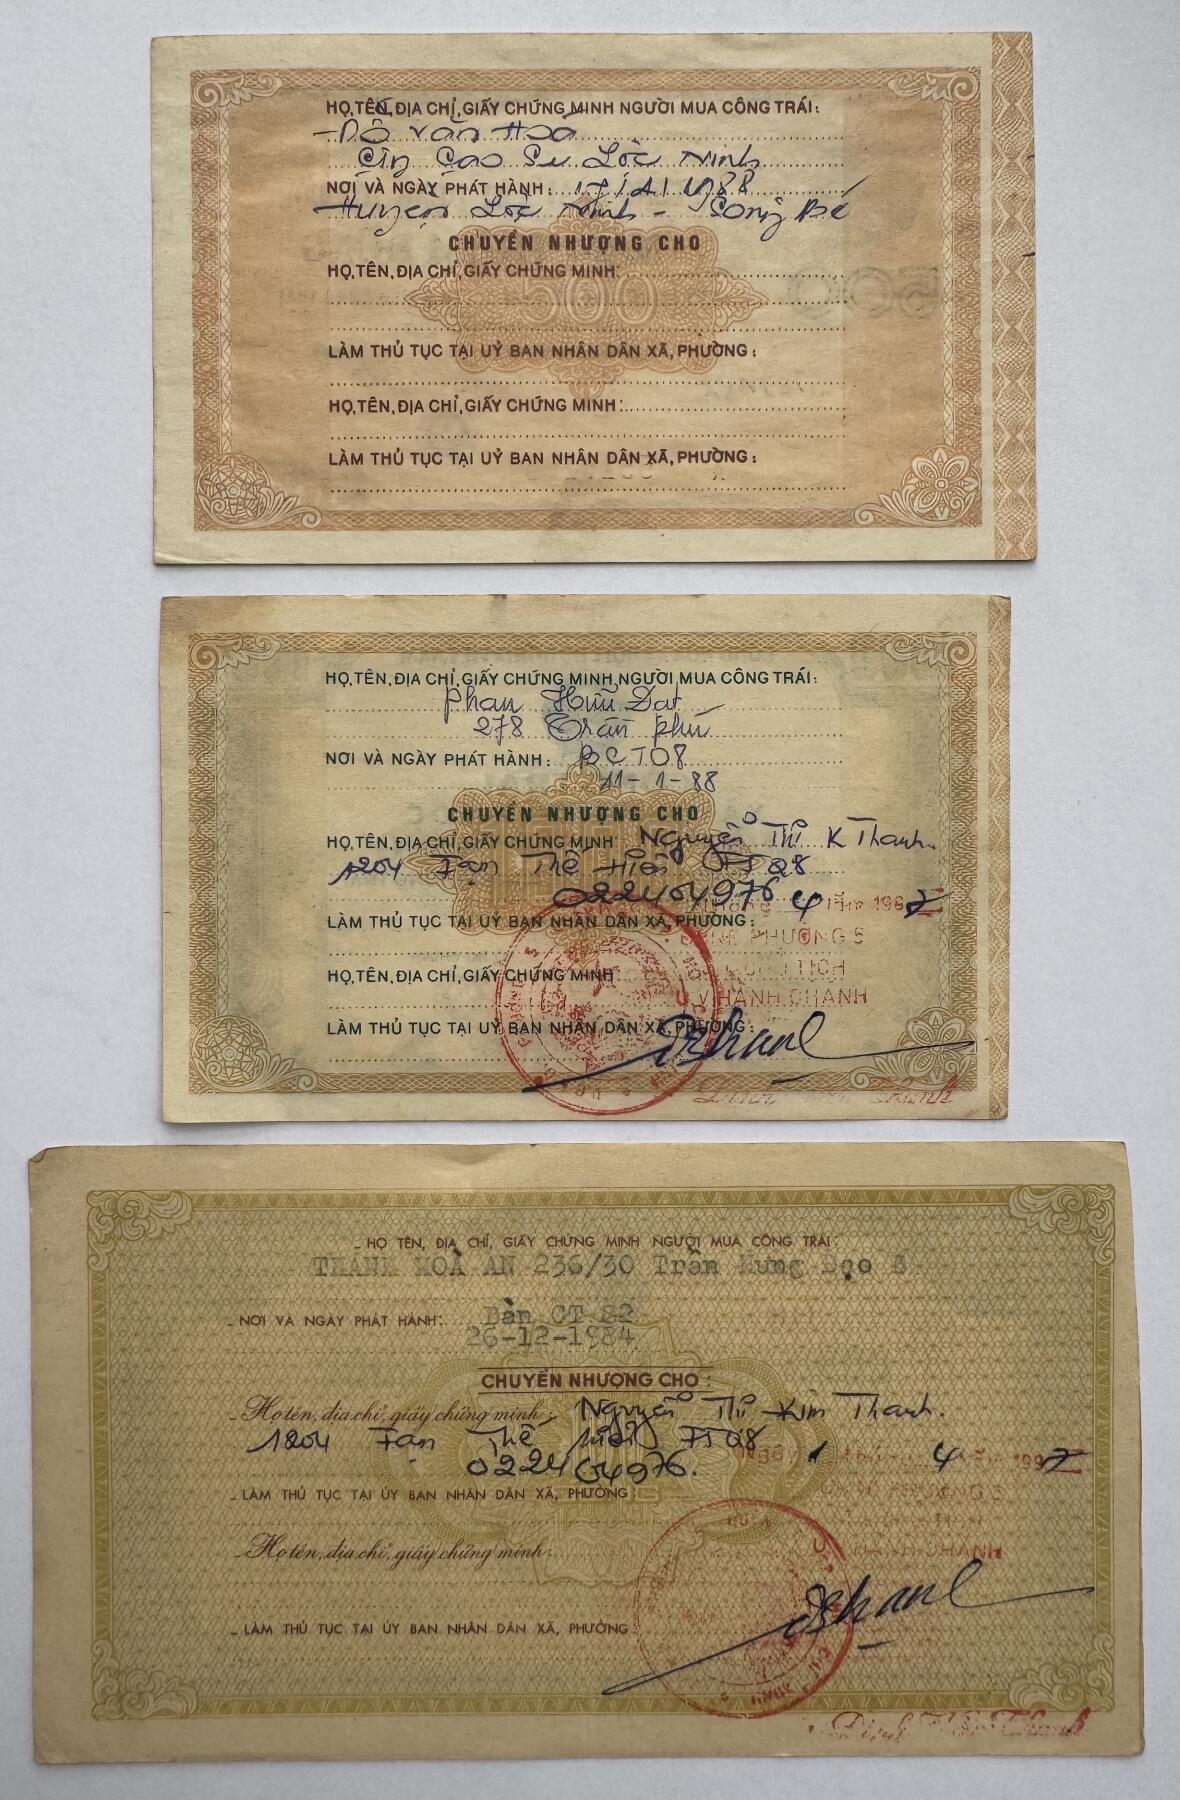 HỌ, TÊN, ĐỊA CHỈ, GIẤY CHỨNG MINH NGƯỜI MUA CÔNG TRÁI:
Đỗ Văn Hoà
Cty Cao Su Lộc Ninh
NƠI VÀ NGÀY PHÁT HÀNH: 1988
Huyện Lộc Ninh - Sông Bé
CHUYỂN NHƯỢNG CHO
HỌ, TÊN, ĐỊA CHỈ, GIẤY CHỨNG MINH:
500
LÀM THỦ TỤC TẠI UỶ BAN NHÂN DÂN XÃ, PHƯỜNG:
HỌ, TÊN, ĐỊA CHỈ, GIẤY CHỨNG MINH:
LÀM THỦ TỤC TẠI UỶ BAN NHÂN DÂN XÃ, PHƯỜNG:
HỌ, TÊN, ĐỊA CHỈ, GIẤY CHỨNG MINH NGƯỜI MUA CÔNG TRÁI:
Phan Hữu Đạt
278 Trần Phú
NƠI VÀ NGÀY PHÁT HÀNH: BCT08
11-1-88
CHUYỂN NHƯỢNG CHO
HỌ, TÊN, ĐỊA CHỈ, GIẤY CHỨNG MINH: Nguyễn Thị K Thanh.
1204 Fạn Thế Hiển F5 Q8
022404976
4 năm 1992
LÀM THỦ TỤC TẠI UỶ BAN NHÂN DÂN XÃ, PHƯỜNG:
PHƯỜNG 5
HỌ, TÊN, ĐỊA CHỈ, GIẤY CHỨNG MINH
TỊCH
U.V HÀNH CHÁNH
LÀM THỦ TỤC TẠI UỶ BAN NHÂN DÂN XÃ, PHƯỜNG:
HỌ TÊN, ĐỊA CHỈ, GIẤY CHỨNG MINH NGƯỜI MUA CÔNG TRÁI:
THÁNH HOÀ AN 236/30 Trần Hưng Đạo B
NƠI VÀ NGÀY PHÁT HÀNH: Bàn CT 82
26-12-1984
CHUYỂN NHƯỢNG CHO:
Họ tên, địa chỉ, giấy chứng minh: Nguyễn Thị Kim Thanh.
1204 Fạn Thế Hiển F5 Q8
022404976.
1 4 1992
LÀM THỦ TỤC TẠI ỦY BAN NHÂN DÂN XÃ, PHƯỜNG:
Họ tên, địa chỉ, giấy chứng minh:
LÀM THỦ TỤC TẠI ỦY BAN NHÂN DÂN XÃ, PHƯỜNG: